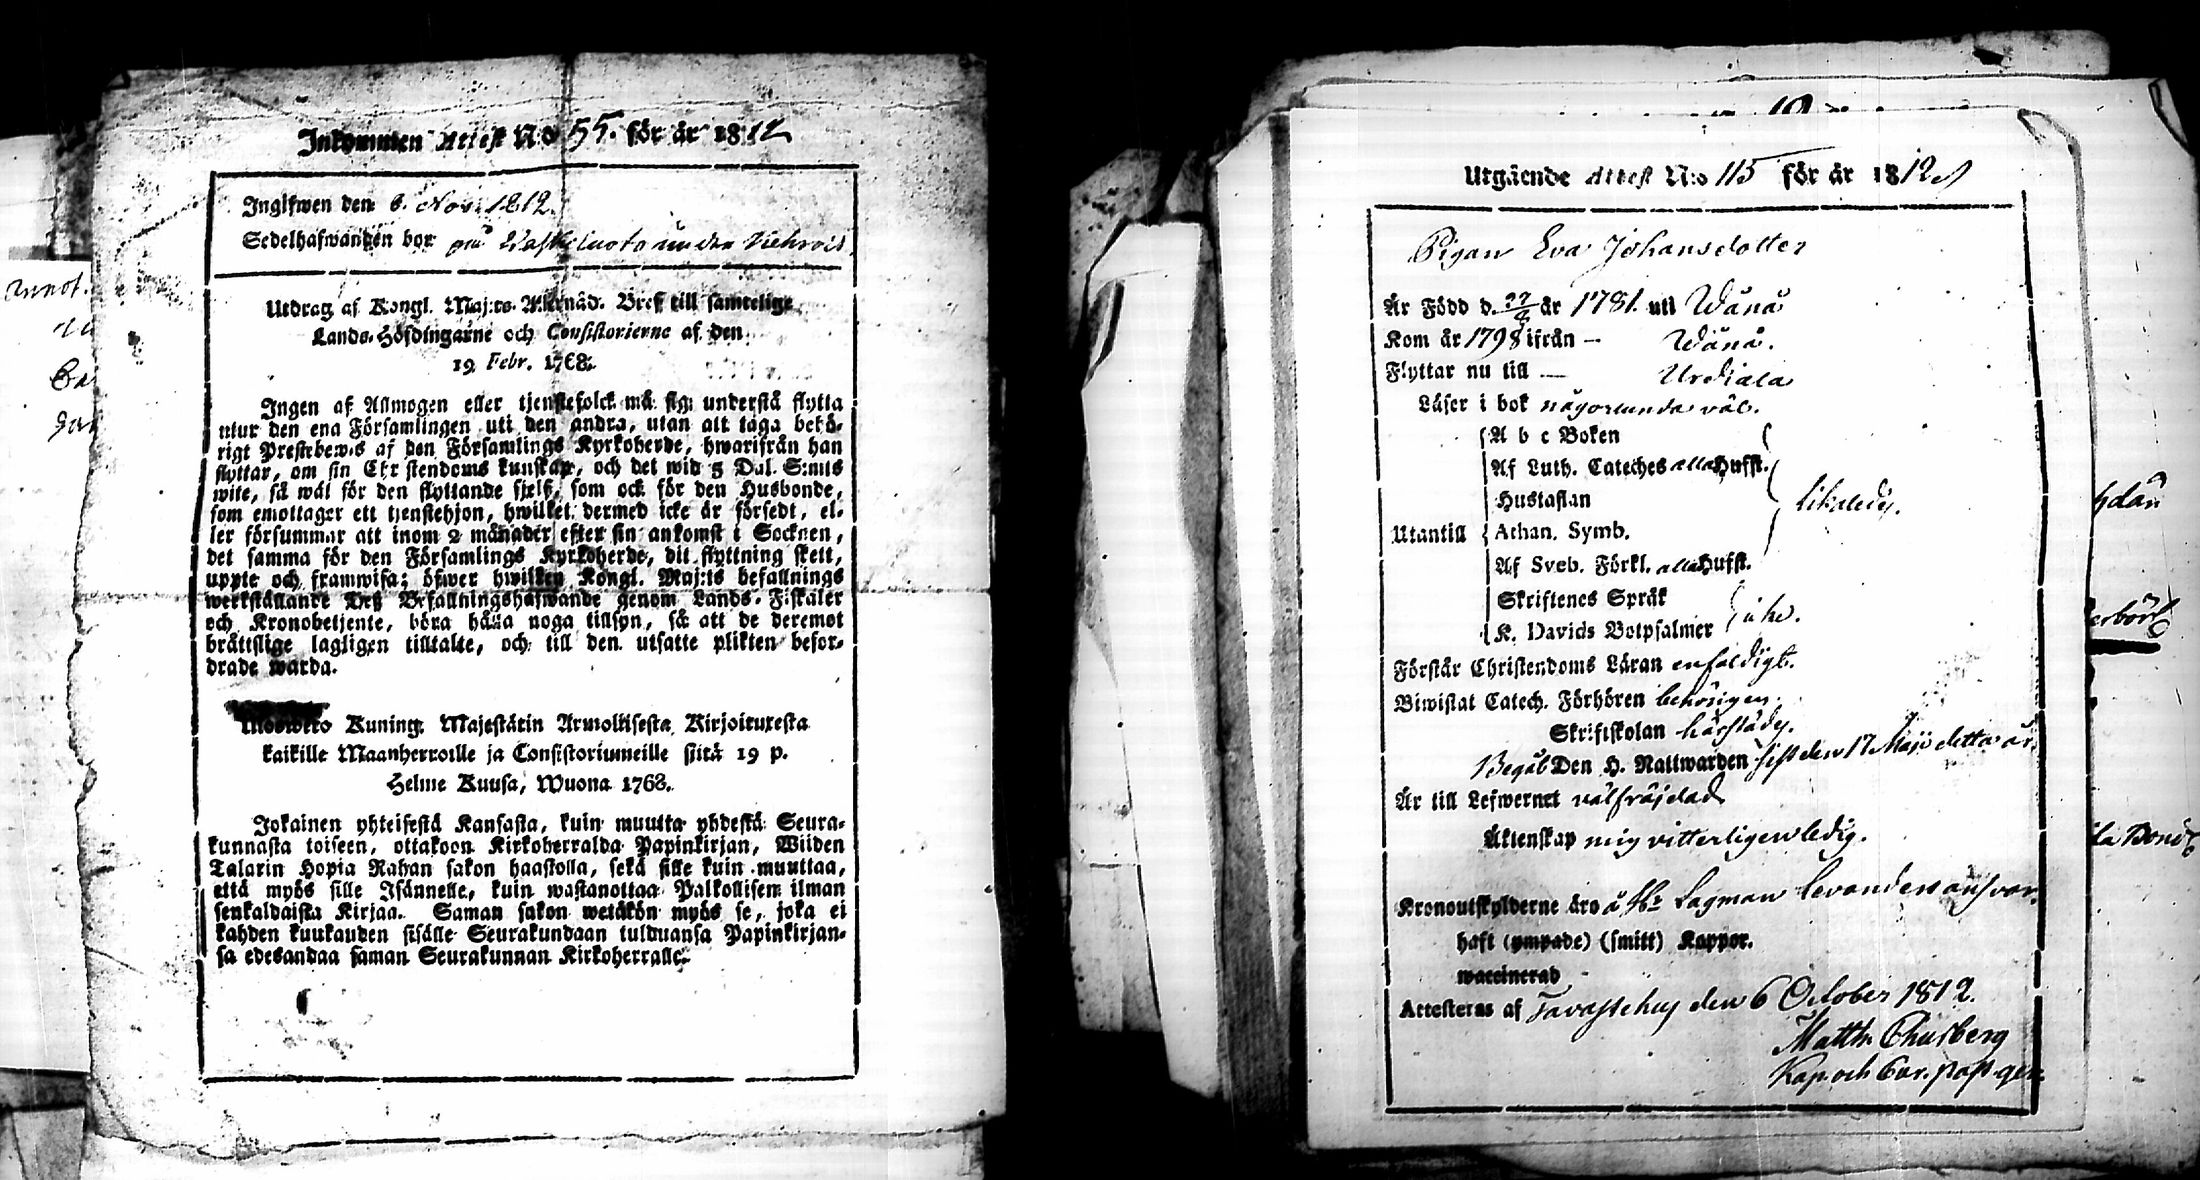 Inkommen Attest No 55. för år 1812
Ingifwen den 8. Nov. 1812.
Sedelhafwanden bor på Waskiluoto under Nuhrois
Utdrag af Kongl. Maj:ts Allernåd. Bref till samtelige
Lands-Höfdingarne och Consistorierne af den
19 Febr. 1768.
Ingen af Allmogen eller tjenstefolck må sig understå flytta
utur den ena Församlingen uti den andra, utan att taga behö-
rigt Prestebewis af den Församlings Kyrkoherde, hwarifrån han
flyttar, om sin Christendoms kunskap, och det wid 5 Dal. S:mts
wite, så wäl för den flyttande sjelf, som ock för den Husbonde,
som emottager ett tjenstehjon, hwilket dermed icke är försedt, el-
ler försummar att inom 2 månader efter sin ankomst i Socknen,
det samma för den Församlings Kyrkoherde, dit flyttning skett,
uppte och framwisa; öfwer hwilken Kongl. Maj:ts befallnings
werkställande Des Befallningshafwande genom Lands-Fiskaler
och Kronobetjente, böra hålla noga tillsyn, så att de deremot
bråttslige lagligen tilltalte, och till den utsatte plikten befor-
drade warda.
Kuning. Majestätin Armollisesta Kirjoituxesta
kaikille Maanherroille ja Consistoriumeille siitä 19 p.
Helme Kuusa, Wuona 1768.
Jokainen yhteisestä Kansasta, kuin muutta yhdestä Seura-
kunnasta toiseen, ottakoon Kirkoherralda Papinkirjan, Wiiden
Talarin Hopia Rahan sakon haastolla, sekä sille kuin muuttaa,
että myös sille Isännelle, kuin wastanottaa Palkollisen ilman
senkaldaista Kirjaa. Saman sakon wetäkön myös se, joka ei
kahden kuukauden sisälle Seurakundaan tulduansa Papinkirjan-
sa edesandaa saman Seurakunnan Kirkoherralle.
Utgående Attest N:o 115 för år 1812
Pigan Eva Johansdotter
Är Född d. 27/6 år 1781. uti Wånå
Kom år 1798 ifrån — Wånå.
Flyttar nu till — Urdiala
Läser i bok någorlunda väl.
A b c Boken
Af Luth. Cateches alla Hufst.
Hustaflan
Utantill Athan. Symb. likaledes.
Af Sveb. Förkl. alla Hufst.
Skriftenes Språk
K. Davids Botpsalmer icke.
Förstår Christendoms Läran enfaldigt.
Biwistat Catech. Förhören behörigen.
Skriftskolan härstädes.
Begåt Den H. Nattwarden sist den 17 Maji detta år.
Är till Lefwernet välfräjdad
Äktenskap mig vitterligen ledig.
Kronoutskylderne äro å Hr Lagman Levanders ansvar.
haft (ympade) (smitt) Koppor.
waccinerad
Attesteras af Tavastehus den 6 October 1812.
Matth. Chusberg
Kap. och Gar. past. gen.